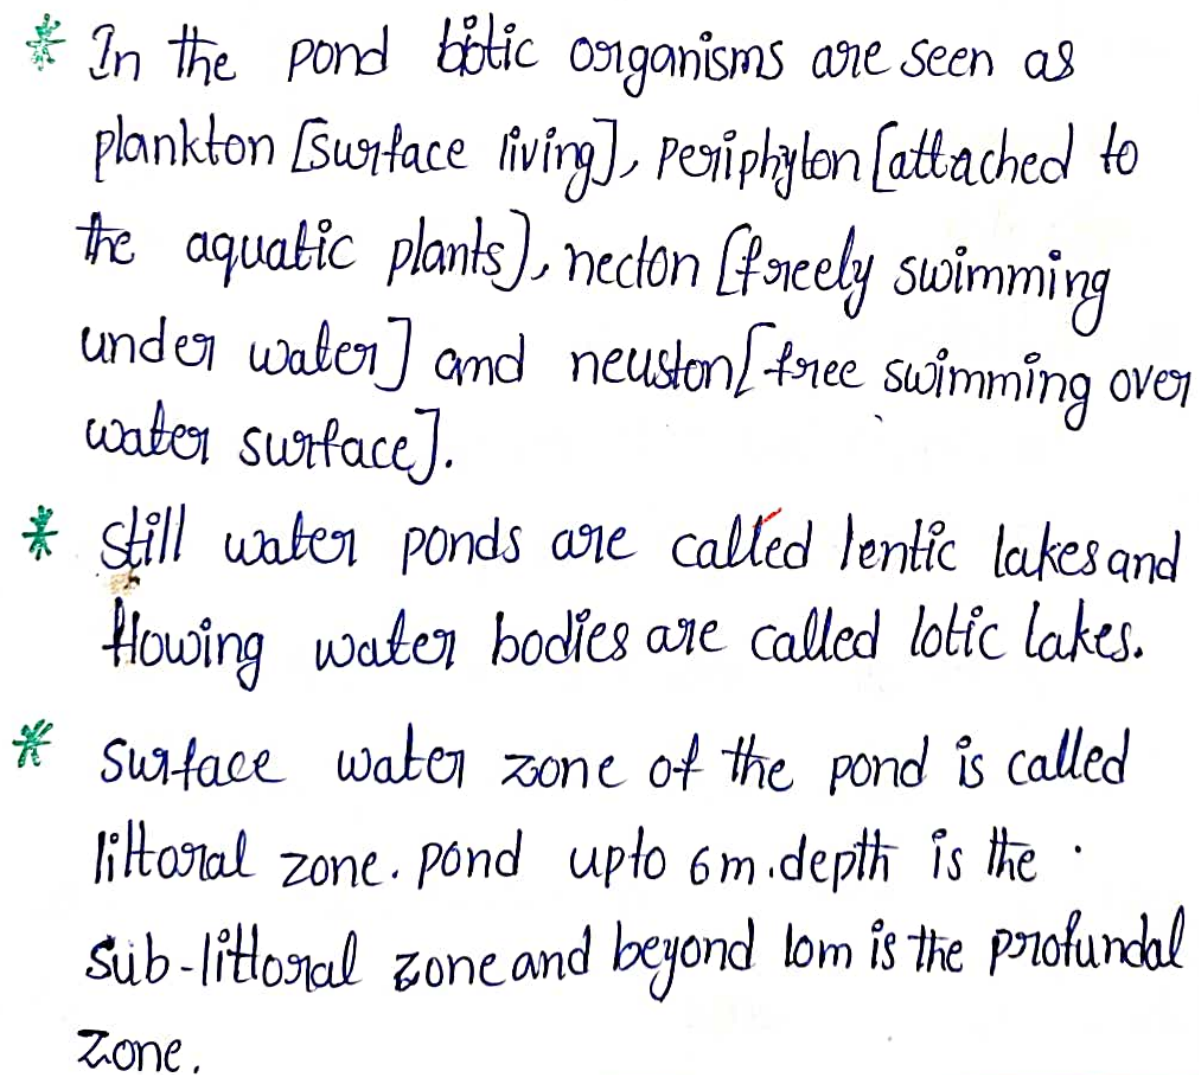 * In the pond biotic organisms are seen as
plankton [surface living], periphyton [attached to
the aquatic plants], necton [freely swimming
under water] and neuston [free swimming over
water surface].
* Still water ponds are called lentic lakes and
flowing water bodies are called lotic lakes.
* Surface water zone of the pond is called
littoral zone. pond upto 6m.depth is the
sub-littoral zone and beyond 10m is the profundal
zone.